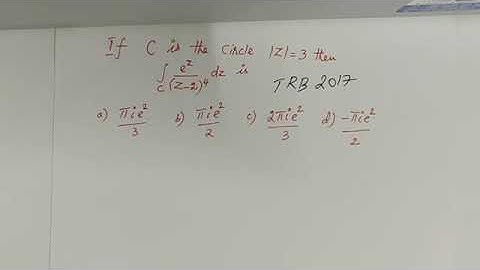 If C is the circle |z|=3 then
∫_C e^z/(z-2)^4 dz is
TRB 2017
a) πie^2/3 b) πie^2/2 c) 2πie^2/3 d) -πie^2/2